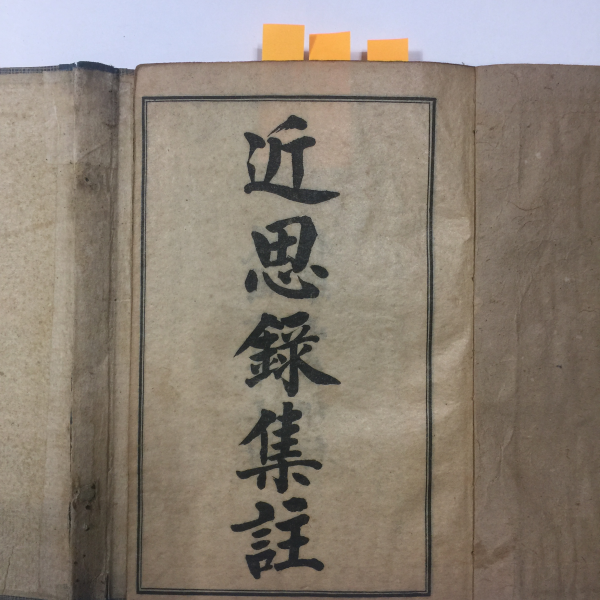 近思錄集註